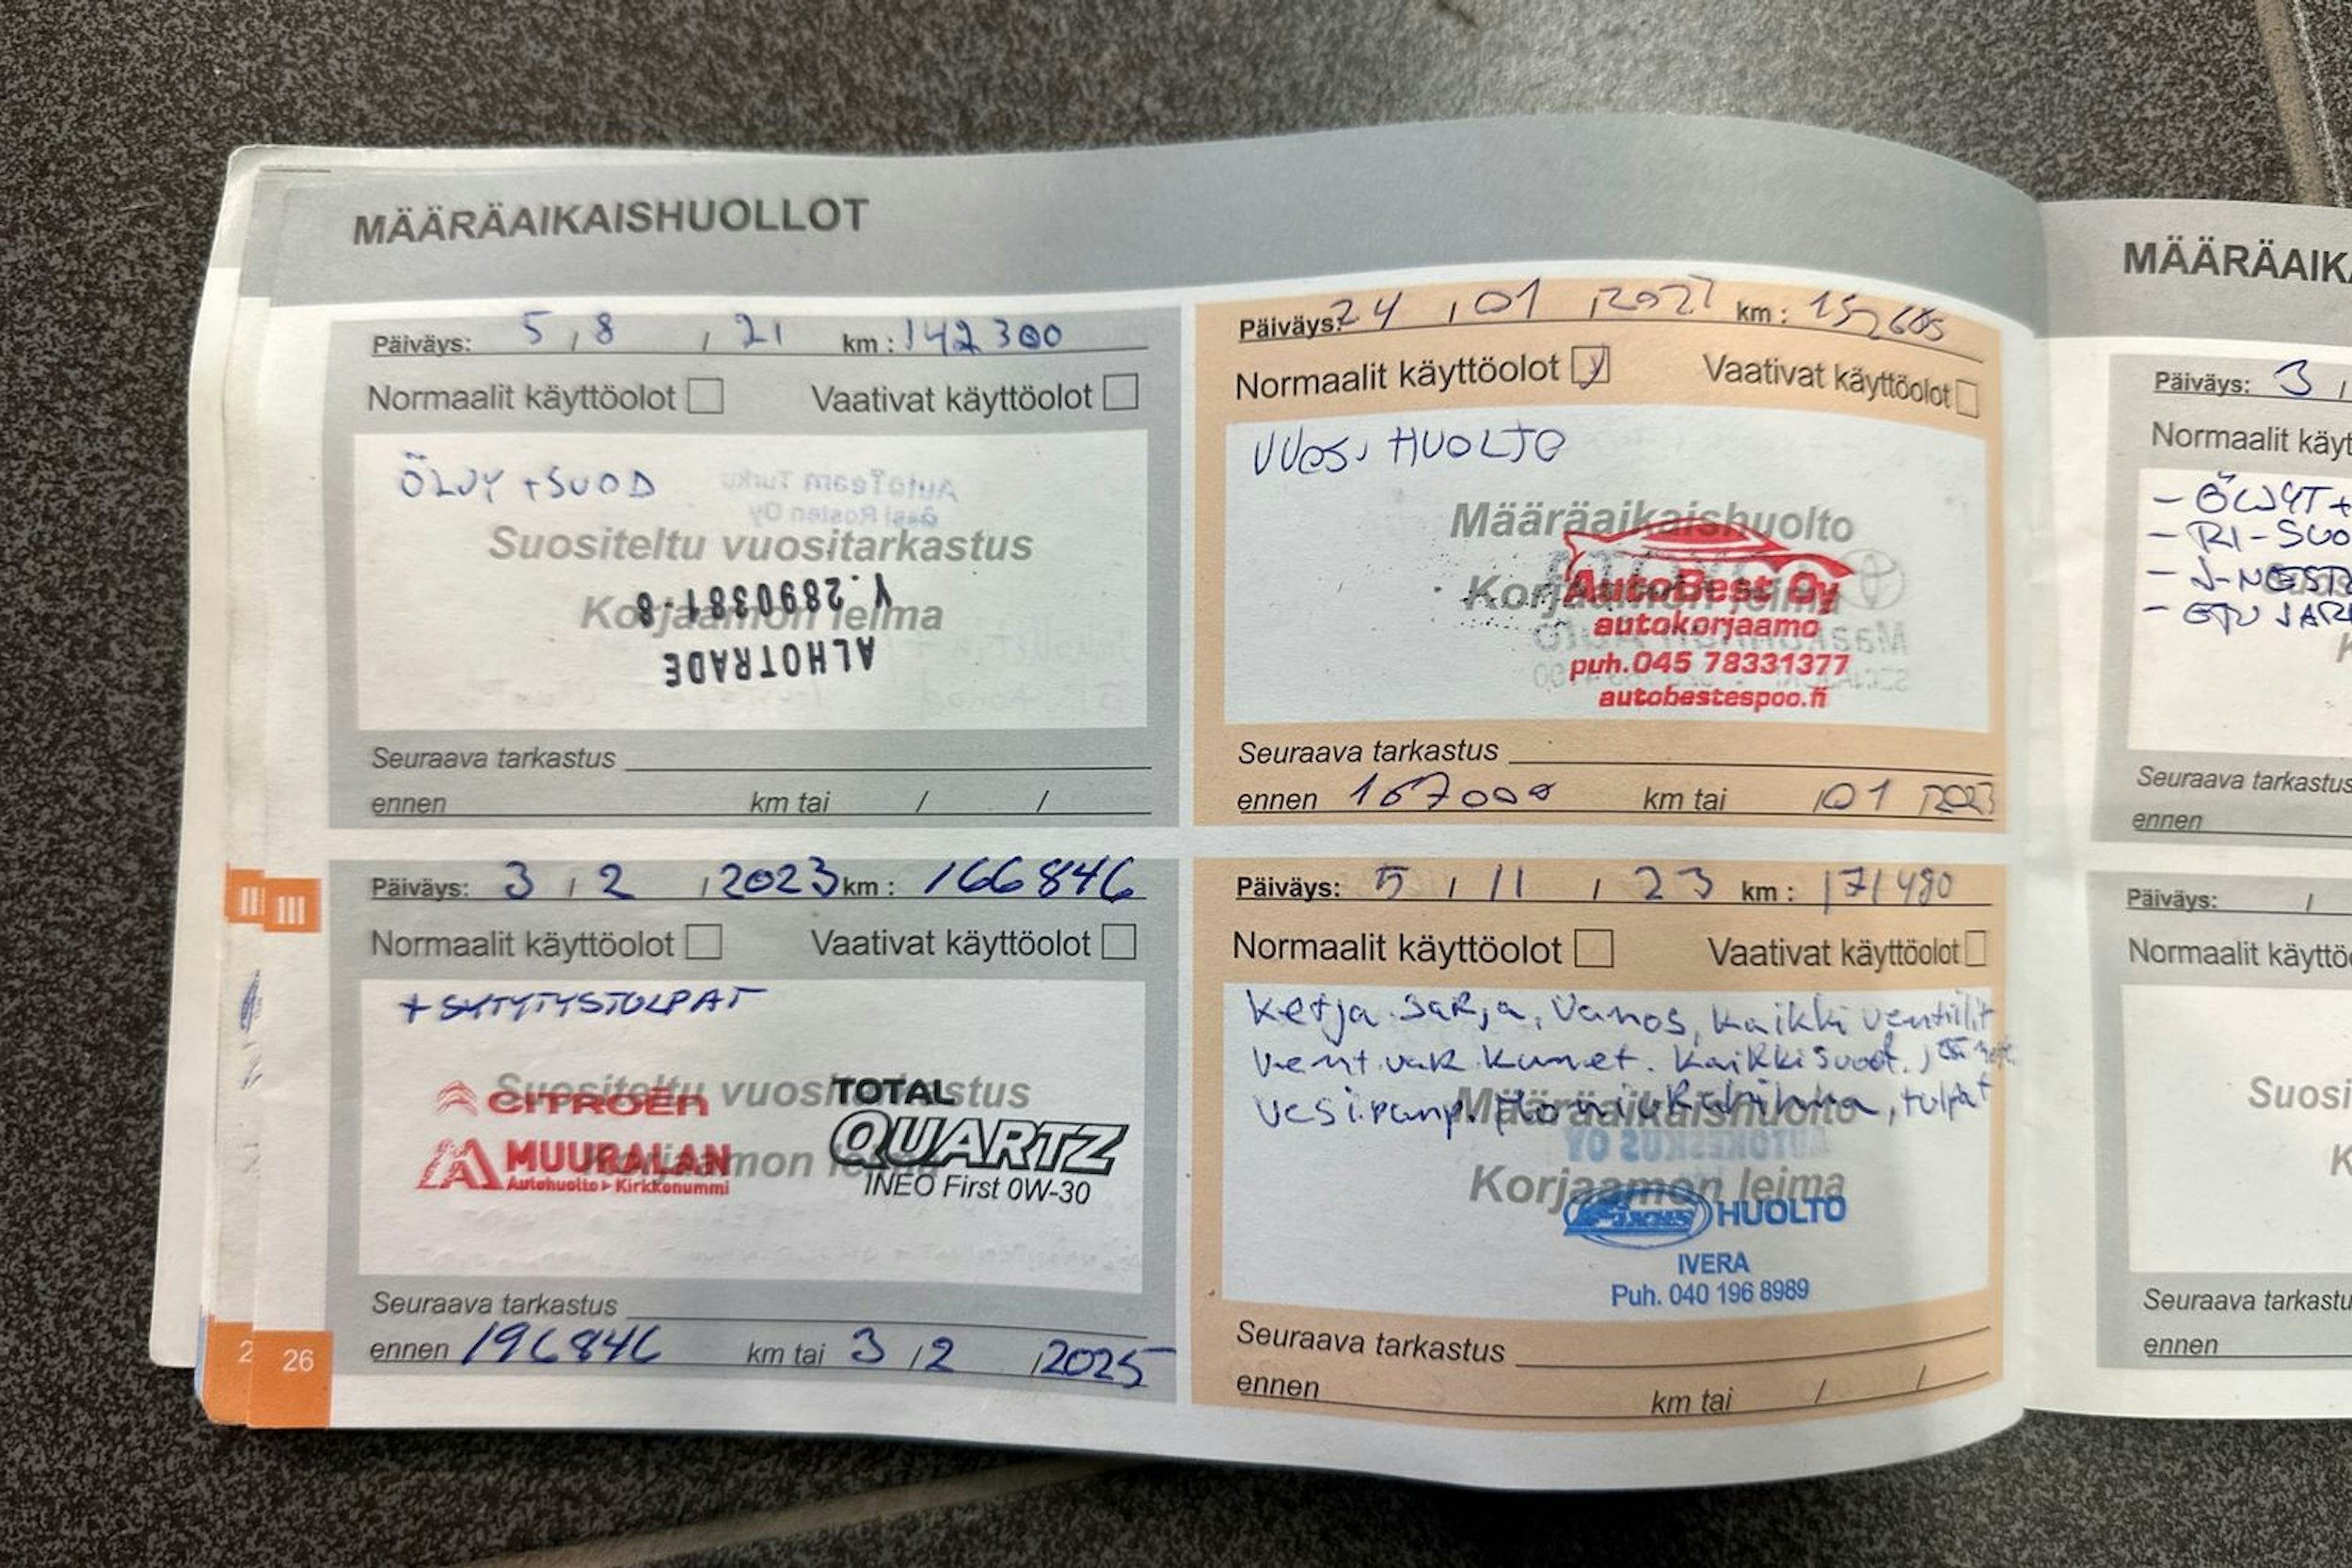 MÄÄRÄAIKAISHUOLLOT
Päiväys: 5 / 8 / 21 km: 142300
Normaalit käyttöolot Vaativat käyttöolot
ÖLJY + SUOD
AutoTeam Turku
Suositeltu vuositarkastus
Y. 2890381-8
Korjaamon leima
ALHOTRADE
Seuraava tarkastus
ennen km tai / /
Päiväys: 24 / 01 / 2022 km: 152665
Normaalit käyttöolot Vaativat käyttöolot
VUOSI HUOLTO
Määräaikaishuolto
Korjaamon leima
AutoBest Oy
autokorjaamo
puh.045 78331377
autobestespoo.fi
Seuraava tarkastus
ennen 167000 km tai / 01 / 2023
Päiväys: 3 / 2 / 2023 km: 166846
Normaalit käyttöolot Vaativat käyttöolot
+ SYTYTYSTULPAT
Suositeltu vuositarkastus
CITROËN
TOTAL
QUARTZ
INEO First 0W-30
Korjaamon leima
MUURALAN
Autohuolto Kirkkonummi
Seuraava tarkastus
ennen 196846 km tai 3 / 2 / 2025
Päiväys: 5 / 11 / 23 km: 171490
Normaalit käyttöolot Vaativat käyttöolot
Ketja sarja, Vanos, kaikki ventiilit
vent vak kumet. kaikki suod.,
vesipump. Moniurahihna, tulpat
Määräaikaishuolto
Korjaamon leima
HUOLTO
IVERA
Puh. 040 196 8989
Seuraava tarkastus
ennen km tai / /
26
MÄÄRÄAIK
Päiväys: 3 /
Normaalit käyt
- ÖLJYT +
- RI-SUO
- J-NEST
- ETU JAR
Seuraava tarkastus
ennen
Päiväys: /
Normaalit käyttö
Suosi
K
Seuraava tarkastu
ennen